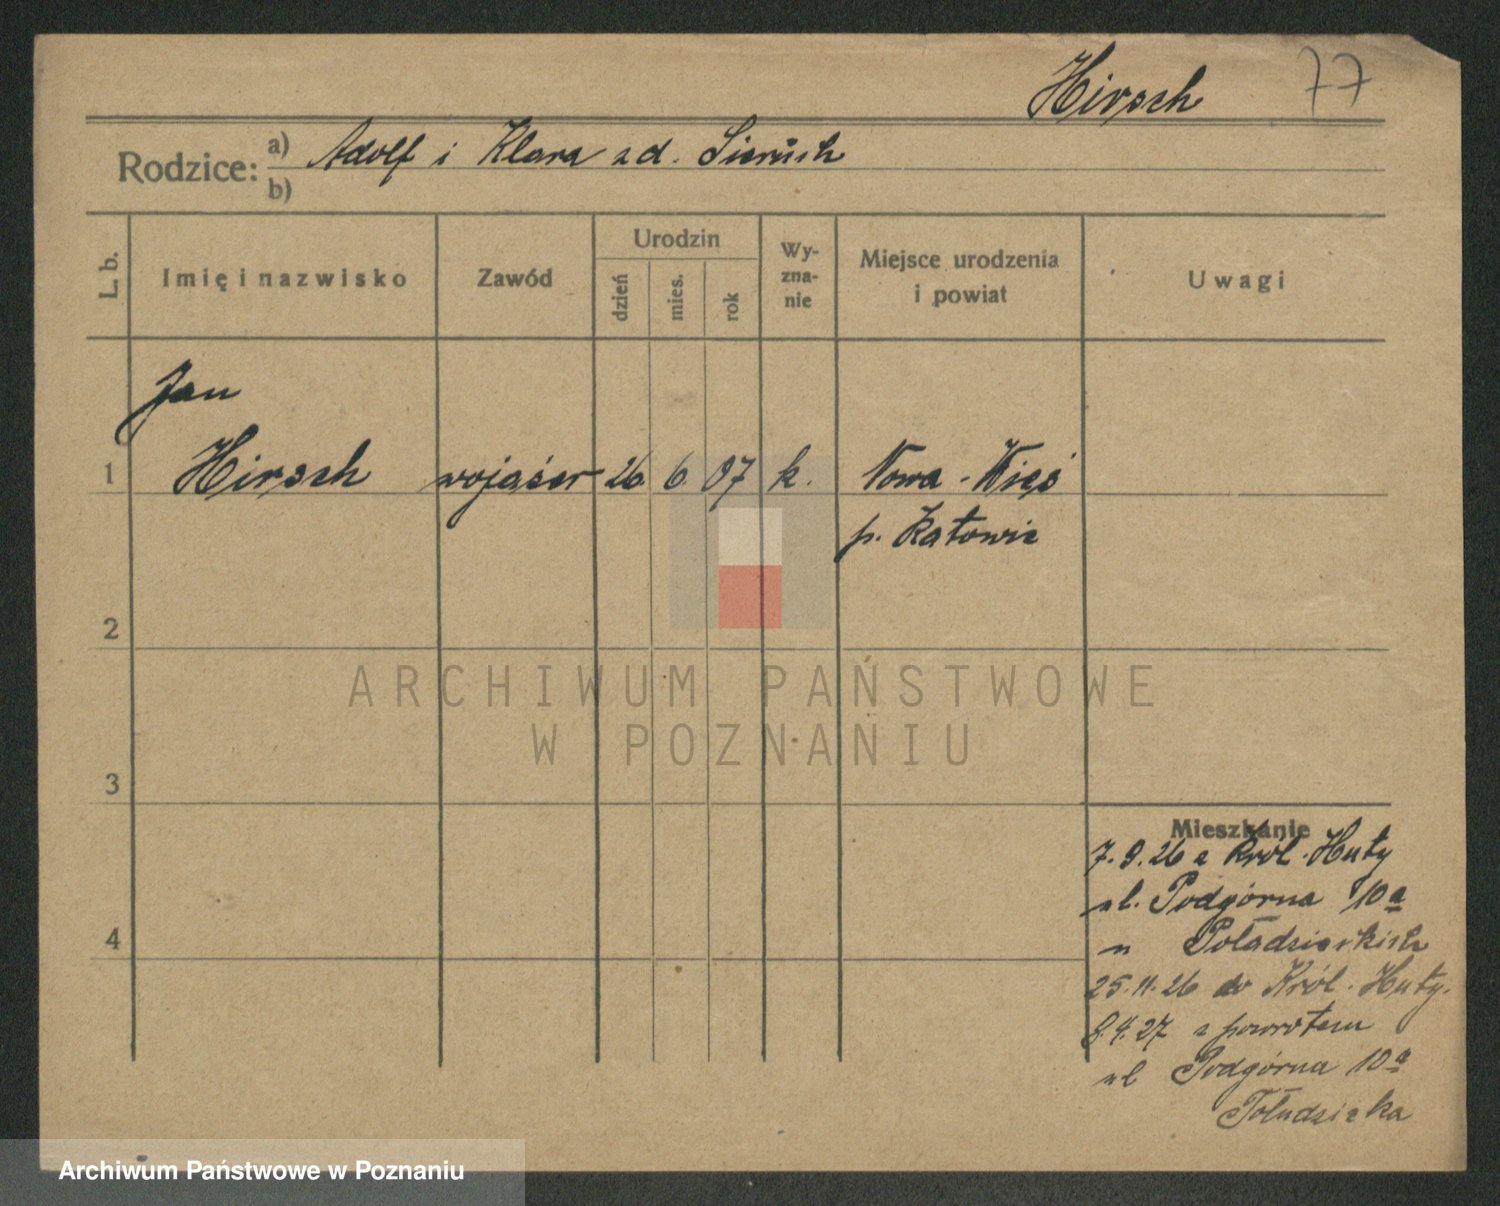 Hirsch 77
Rodzice: a) Adolf i Klara zd.
b)
L. b. Imię i nazwisko Zawód Urodzin dzień mies. rok Wy-zna-nie Miejsce urodzenia i powiat Uwagi
Jan
1 Hirsch 26 6 07 k. Nowa-Wieś
p. Katowic
2
3
4
Mieszkanie
7.9.26 z Król. Huty
ul. Podgórna 10a
u
25.11.26 do Król. Huty.
8.4.27 z powrotem
ul Podgórna 10a
ARCHIWUM PAŃSTWOWE
W POZNANIU
Archiwum Państwowe w Poznaniu